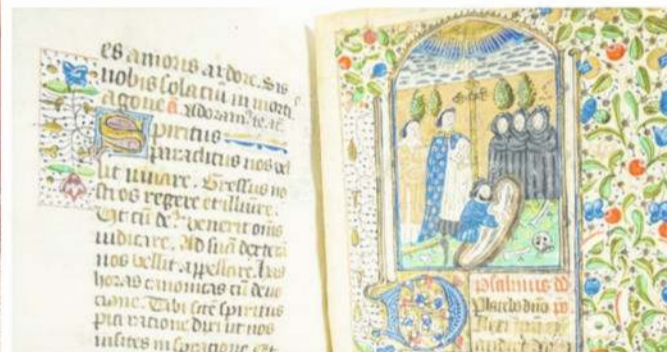 es amoris ardore. Sis
nobis solaciū in morti
agone ā Adoram⁹ te. ꝛc
Spiritus
paraclitus nos vel
lit iuuare. Gressus no
stros regere et illu
Ut cū de venerit oīs
iudicare. Ad suā dexterā
nos vellit appellare. has
horas canonicas cū deuo
cione. Tibi sc̄te spiritus
pia racione dixi ut nos
visites
psalmus
Placebo dn̄o